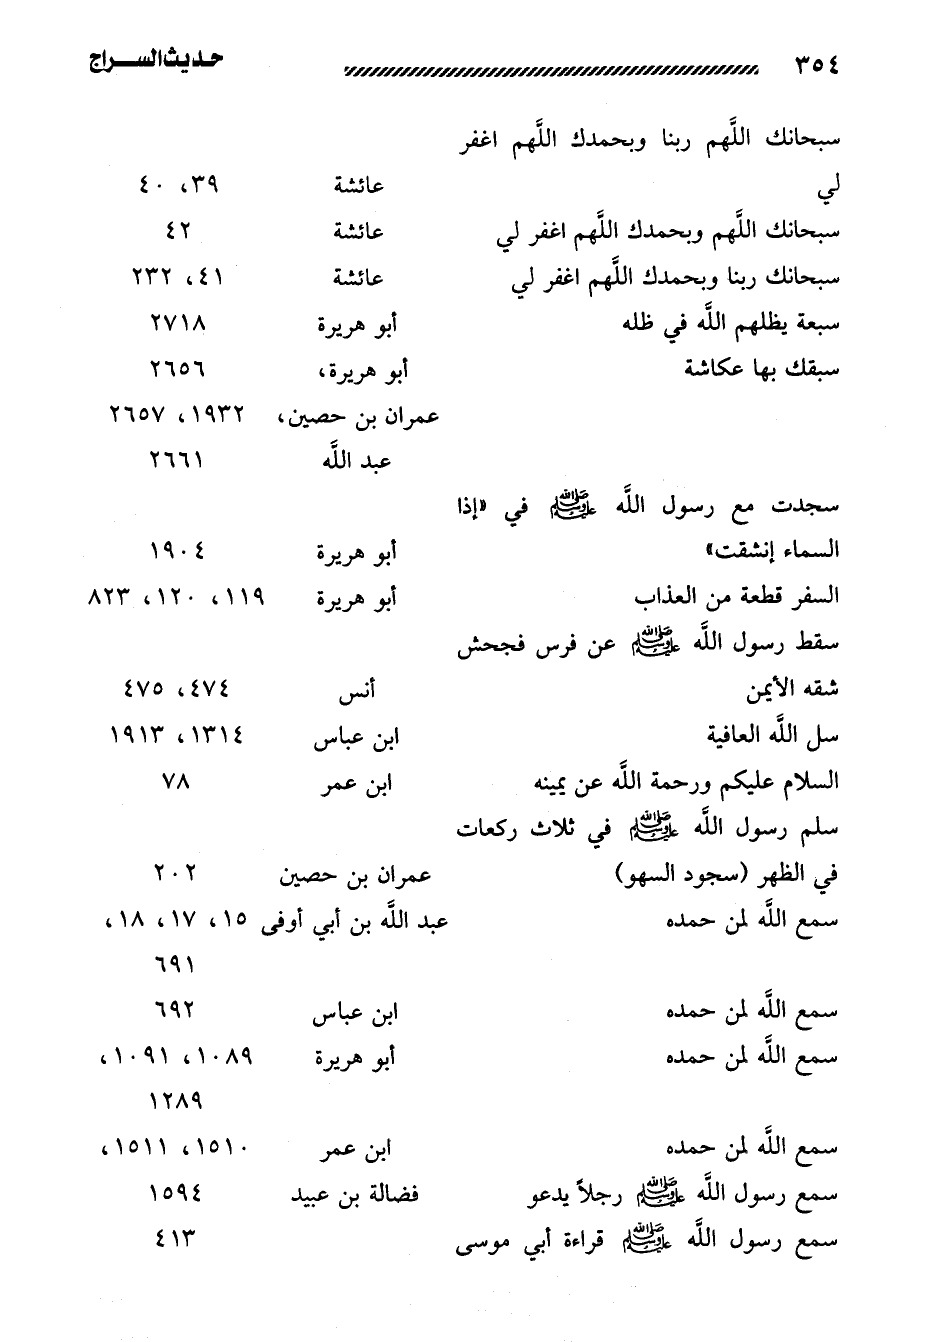 ٣٥٤ حديث السراج
سبحانك اللَّهم ربنا وبحمدك اللَّهم اغفر
لي عائشة ٣٩، ٤٠
سبحانك اللَّهم وبحمدك اللَّهم اغفر لي عائشة ٤٢
سبحانك ربنا وبحمدك اللَّهم اغفر لي عائشة ٤١، ٢٣٢
سبعة يظلهم اللَّه في ظله أبو هريرة ٢٧١٨
سبقك بها عكاشة أبو هريرة، ٢٦٥٦
عمران بن حصين، ١٩٣٢، ٢٦٥٧
عبد اللَّه ٢٦٦١
سجدت مع رسول اللَّه ﷺ في «إذا
السماء إنشقت» أبو هريرة ١٩٠٤
السفر قطعة من العذاب أبو هريرة ١١٩، ١٢٠، ٨٢٣
سقط رسول اللَّه ﷺ عن فرس فجحش
شقه الأيمن أنس ٤٧٤، ٤٧٥
سل اللَّه العافية ابن عباس ١٣١٤، ١٩١٣
السلام عليكم ورحمة اللَّه عن يمينه ابن عمر ٧٨
سلم رسول اللَّه ﷺ في ثلاث ركعات
في الظهر (سجود السهو) عمران بن حصين ٢٠٢
سمع اللَّه لمن حمده عبد اللَّه بن أبي أوفى ١٥، ١٧، ١٨،
٦٩١
سمع اللَّه لمن حمده ابن عباس ٦٩٢
سمع اللَّه لمن حمده أبو هريرة ١٠٨٩، ١٠٩١،
١٢٨٩
سمع اللَّه لمن حمده ابن عمر ١٥١٠، ١٥١١،
سمع رسول اللَّه ﷺ رجلاً يدعو فضالة بن عبيد ١٥٩٤
سمع رسول اللَّه ﷺ قراءة أبي موسى ٤١٣